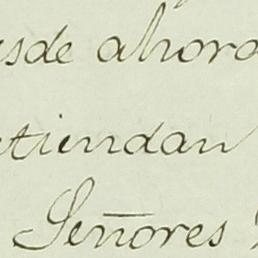 sde ahora
tiendan
Señores